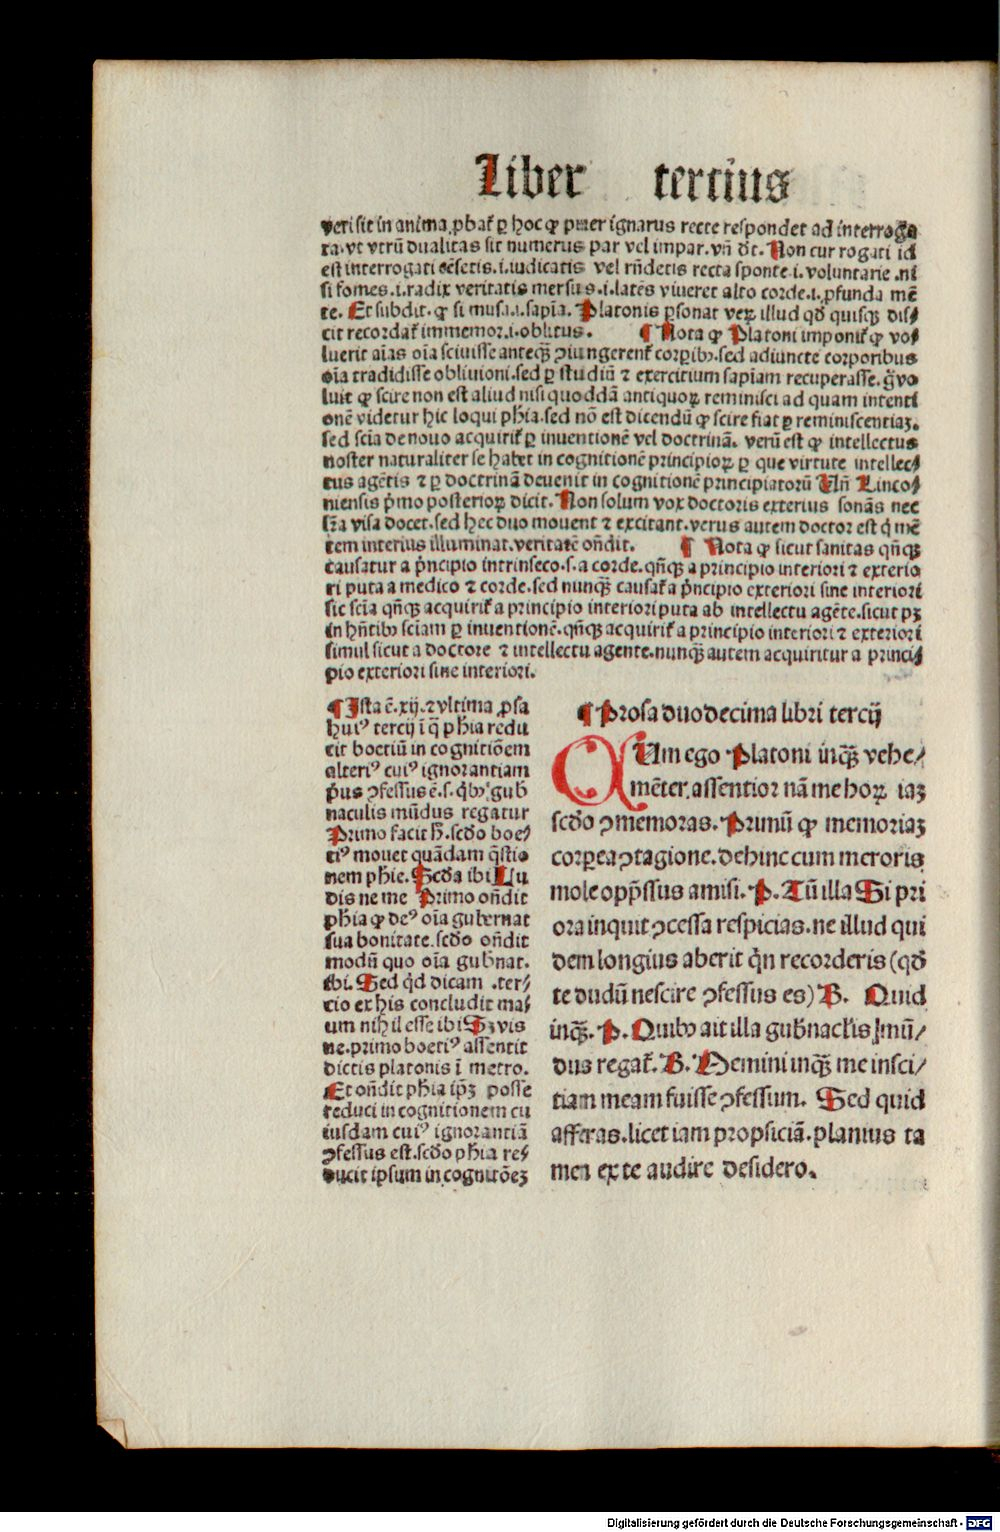 Liber tercius
veri sit in anima ꝓbat̃ ꝑ hoc ꝙ puer ignarus recte respondet ad interroga
ta.vt vtrũ dualitas sit numerus par vel impar.vñ dt̃. Non cur rogati id
est interrogati cẽsetis.i.iudicatis vel rñdetis recta sponte.i.voluntarie.ni
si fomes.i.radix veritatis mersus.i.latẽs viueret alto corde.i.ꝓfunda mẽ
te. Et subdit.ꝙ si musa.i.sapĩa. Platonis ꝑsonat veꝝ illud qđ quisqꝫ dis⸗
cit recordat̃ immemor.i.oblitus. ¶ Nota ꝙ Platoni imponit̃ ꝙ vo⸗
luerit aĩas oĩa sciuisse anteqꝫ̃ ꝯiungerent̃ corꝑibꝰ.sed adiuncte corporibus
oĩa tradidisse obliuioni.sed ꝑ studiũ ⁊ exercitium sapĩam recuperasse.q̃ vo
luit ꝙ scire non est aliud nisi quoddã antiquoꝝ reminisci ad quam intenti
onẽ videtur hic loqui phĩa.sed nõ est dicendũ ꝙ scire fiat ꝑ reminiscentiaꝫ.
sed scĩa de nouo acquirit̃ ꝑ inuentionẽ vel doctrinã. verũ est ꝙ intellectus
noster naturaliter se habet in cognitionẽ principioꝝ ꝑ que virtute intellec⸗
tus agẽtis ⁊ ꝑ doctrinã deuenit in cognitionẽ principiatorũ Vñ Linco⸗
niensis p̃mo posterioꝝ dicit. Non solum vox doctoris exterius sonãs nec
lr̃a visa docet.sed hec duo mouent ⁊ excitant.verus autem doctor est q̃ mẽ
tem interius illuminat.veritatẽ oñdit. ¶ Nota ꝙ sicut sanitas qñqꝫ
causatur a p̃ncipio intrinseco.s.a corde.qñqꝫ a principio interiori ⁊ exterio
ri puta a medico ⁊ corde.sed nunqꝫ̃ causat̃ a p̃ncipio exteriori sine interiori
sic scĩa qñqꝫ acquirit̃ a principio interiori puta ab intellectu agẽte.sicut pꝫ
in hñtibꝰ sciam ꝑ inuentionẽ.qñqꝫ acquirit̃ a principio interiori ⁊ exteriori
simul sicut a doctore ⁊ intellectu agente.nunqꝫ̃ autem acquiritur a princi⸗
pio exteriori sine interiori.
¶ Ista ẽ.xij.⁊ vltima ꝓsa
huiꝰ tercij ĩ q̃ phĩa redu
cit boetiũ in cognitiõem
alteriꝰ cuiꝰ ignorantiam
p̃us ꝯfessus ẽ.s.q̃bꝰ gub̃
naculis mũdus regatur
Primo facit h̃.scđo boe⸗
tiꝰ mouet quãdam q̃stio
nem phie. Scđa ibi Lu
dis ne me Primo oñdit
phĩa ꝙ deꝰ oĩa gubernat
sua bonitate.scđo oñdit
modũ quo oĩa gub̃nat.
ibi. Sed q̃d dicam .ter⸗
cio ex his concludit ma⸗
lum nihil esse ibi Sꝫ vis
ne.primo boetiꝰ assentit
dictis platonis ĩ metro.
Et oñdit phĩa ip̃ꝫ posse
reduci in cognitionem cu
iusdam cuiꝰ ignorantiã
ꝯfessus est.scđo phĩa re⸗
ducit ipsum in cognitõeꝫ
¶ Prosa duodecima libri tercij
CUm ego Platoni inqꝫ̃ vehe⸗
mẽter assentior nã me hoꝝ iaꝫ
scđo ꝯmemoras. Primũ ꝙ memoriaꝫ
corꝑea ꝯtagione.dehinc cum meroris
mole opp̃ssus amisi. P. Tũ illa Si pri
ora inquit ꝯcessa respicias.ne illud qui
dem longius aberit q̃n recorderis (qđ
te dudũ nescire ꝯfessus es) B. Quid
inqꝫ̃. P. Quibꝰ ait illa gub̃nacl̃is mũ⸗
dus regat̃. B. Memini inqꝫ̃ me insci⸗
tiam meam fuisse ꝯfessum. Sed quid
afferas.licet iam propsiciã.planius ta
men ex te audire desidero.
Digitalisierung gefördert durch die Deutsche Forschungsgemeinschaft - DFG